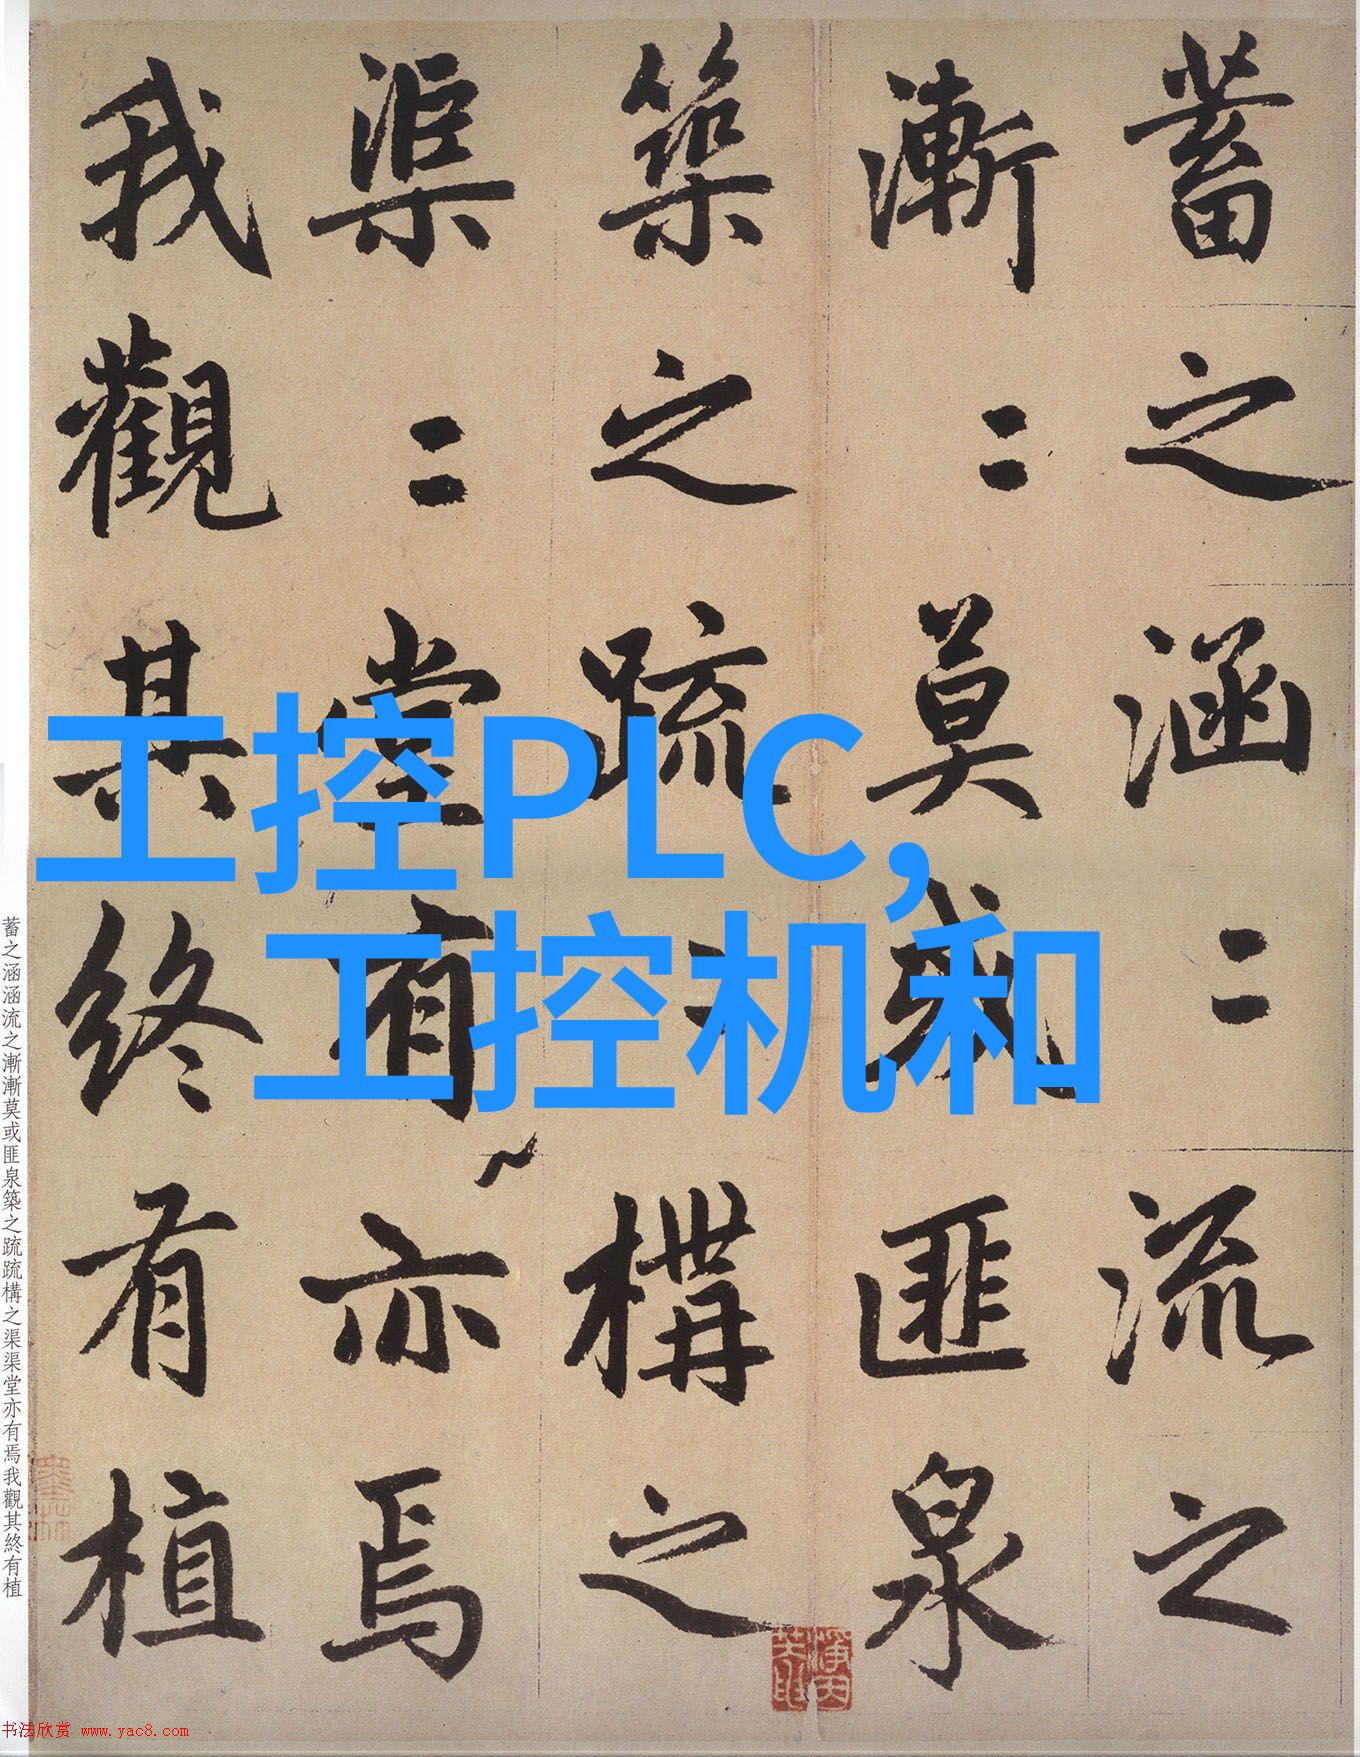 蓄之涵二流之
漸二莫或匪泉
築之疏二構之
渠二堂有亦焉
我觀其終有植
工控PLC,
工控机和
蓄之涵涵流之漸漸莫或匪泉築之疏疏構之渠渠堂亦有焉我觀其終有植
书法欣赏 www.yac8.com